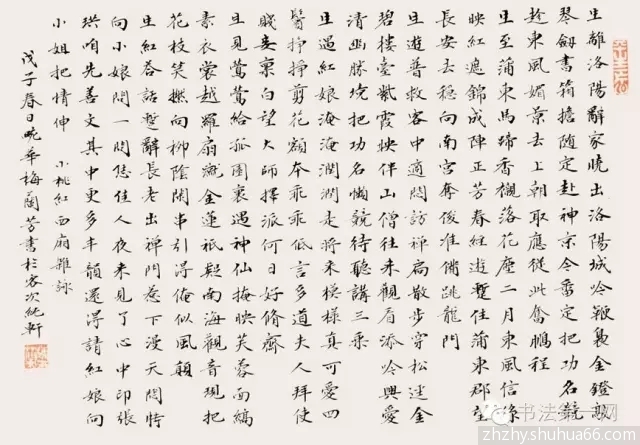 生離洛陽辭家曉出洛陽城吟鞭裊金鐙敲
琴劍書箱擔隨定赴神京今番定把功名競
趁東風媚景去上朝取應從此奮鵬程
生至蒲東馬蹄香襯落花塵二月東風信綠
映紅遮錦成陣正芳春經遊暫住蒲東郡望
長安去穩向南宮奪俊準備跳龍門
生遊普救客中適悶訪禪扃散步穿松逕金
碧樓臺紫霞映伴山僧往來觀眉添吟興愛
清幽勝境把功名懶競待聽講三乘
生遇紅娘淹淹潤潤是將來模樣真可愛四
鬢掙掙剪花顏本乖乖低言多道夫人拜使
賤妾稟白望大師擇派何日好脩齋
生見鶯鶯給孤園裏遇神仙掩映芙蓉面縞
素衣裳越羅扇蹴金蓮祇疑南海觀音現把
花枝笑撚向柳陰閑串引得俺似風顛
生紅荅話暫辭長老出禪門惹下漫天悶特
向小娘問一問恁佳人夜來見了心中印張
珙咱先善文其中更多丰韻還得請紅娘向
小姐把情伸 小桃紅西廂雜詠
戊子春日畹華梅蘭芳書於客次純軒
书法第一网
zhzhy.shuhua66.com